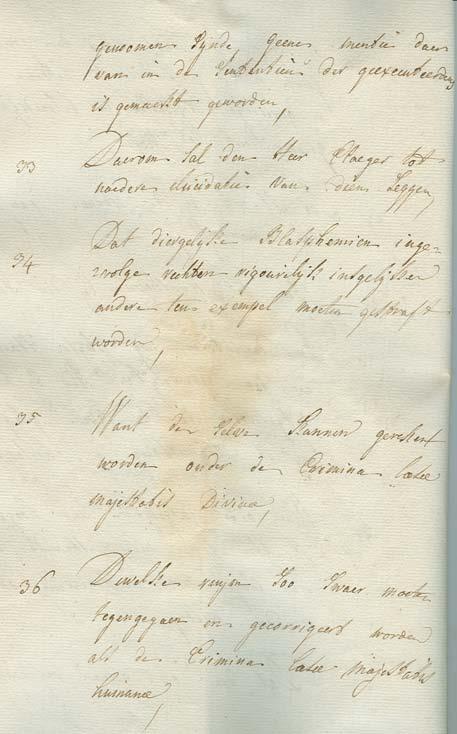 genoomen sijnde, geene mentie daer
van in de Sententien der geexecuteerden
is gemaekt geworden,
33 Daerom sal den Heer Claeger tot
naedere elucidatie van dien seggen,
34 Dat diergelijke Blasphemien inge-
volge rechten rigourelijk
andere ten exempel moeten gestraft
worden,
35 Want de selve kannen gerekent
worden onder de Crimina laesae
majestatis Divinae,
36 Dewelke soo swaer moeten
tegengegaen en gecorrigeert worden
als de Crimina laesae majestatis
humanae,